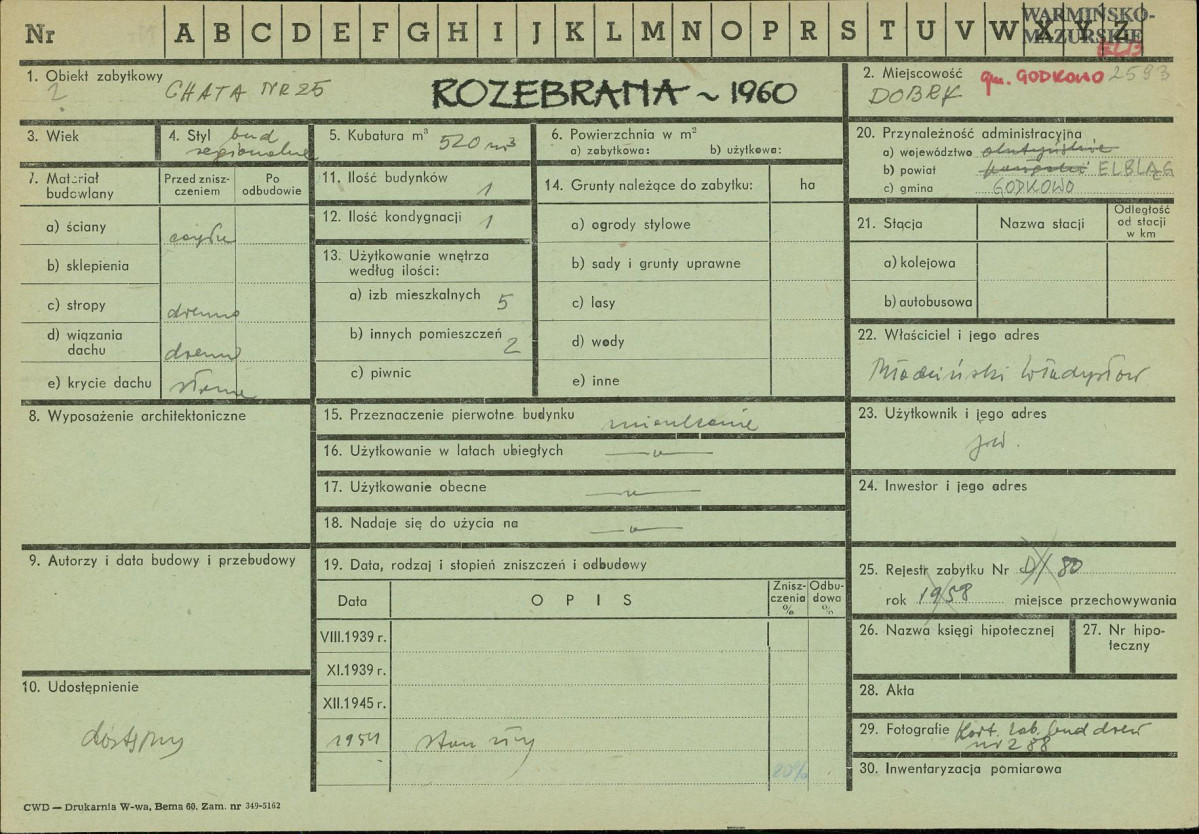 Nr A B C D E F G H I J K L M N O P R S T U V W X Y Z
WARMIŃSKO-
MAZURSKIE
ELB
1. Obiekt zabytkowy
2
CHATA NR 25
ROZEBRANA ~ 1960
2. Miejscowość gm. GODKOWO 2593
DOBRY
3. Wiek
4. Styl bud
regionalne
5. Kubatura m³ 520 m³
6. Powierzchnia w m²
a) zabytkowa: b) użytkowa:
20. Przynależność administracyjna
a) województwo olsztyńskie
b) powiat ELBLĄG
c) gmina GODKOWO
7. Materiał
budowlany
Przed znisz-
czeniem
Po
odbudowie
a) ściany
b) sklepienia
c) stropy drewno
d) wiązania
dachu drewno
e) krycie dachu słoma
11. Ilość budynków 1
12. Ilość kondygnacji 1
13. Użytkowanie wnętrza
według ilości:
a) izb mieszkalnych 5
b) innych pomieszczeń 2
c) piwnic
14. Grunty należące do zabytku: ha
a) ogrody stylowe
b) sady i grunty uprawne
c) lasy
d) wody
e) inne
21. Stacja
Nazwa stacji
Odległość
od stacji
w km
a) kolejowa
b) autobusowa
22. Właściciel i jego adres
Władysław
23. Użytkownik i jego adres
jw.
24. Inwestor i jego adres
8. Wyposażenie architektoniczne
15. Przeznaczenie pierwotne budynku mieszkanie
16. Użytkowanie w latach ubiegłych —„—
17. Użytkowanie obecne —„—
18. Nadaje się do użycia na —„—
9. Autorzy i data budowy i przebudowy
19. Data, rodzaj i stopień zniszczeń i odbudowy
Data
O P I S
Znisz-
czenia
%
Odbu-
dowa
%
VIII.1939 r.
XI.1939 r.
XII.1945 r.
20%
25. Rejestr zabytku Nr D/80
rok 1958 miejsce przechowywania
26. Nazwa księgi hipotecznej
27. Nr hipo-
teczny
28. Akta
29. Fotografie Kart. zab. bud drew
nr 288
30. Inwentaryzacja pomiarowa
10. Udostępnienie
dostępny
CWD — Drukarnia W-wa, Bema 60. Zam. nr 349-5162